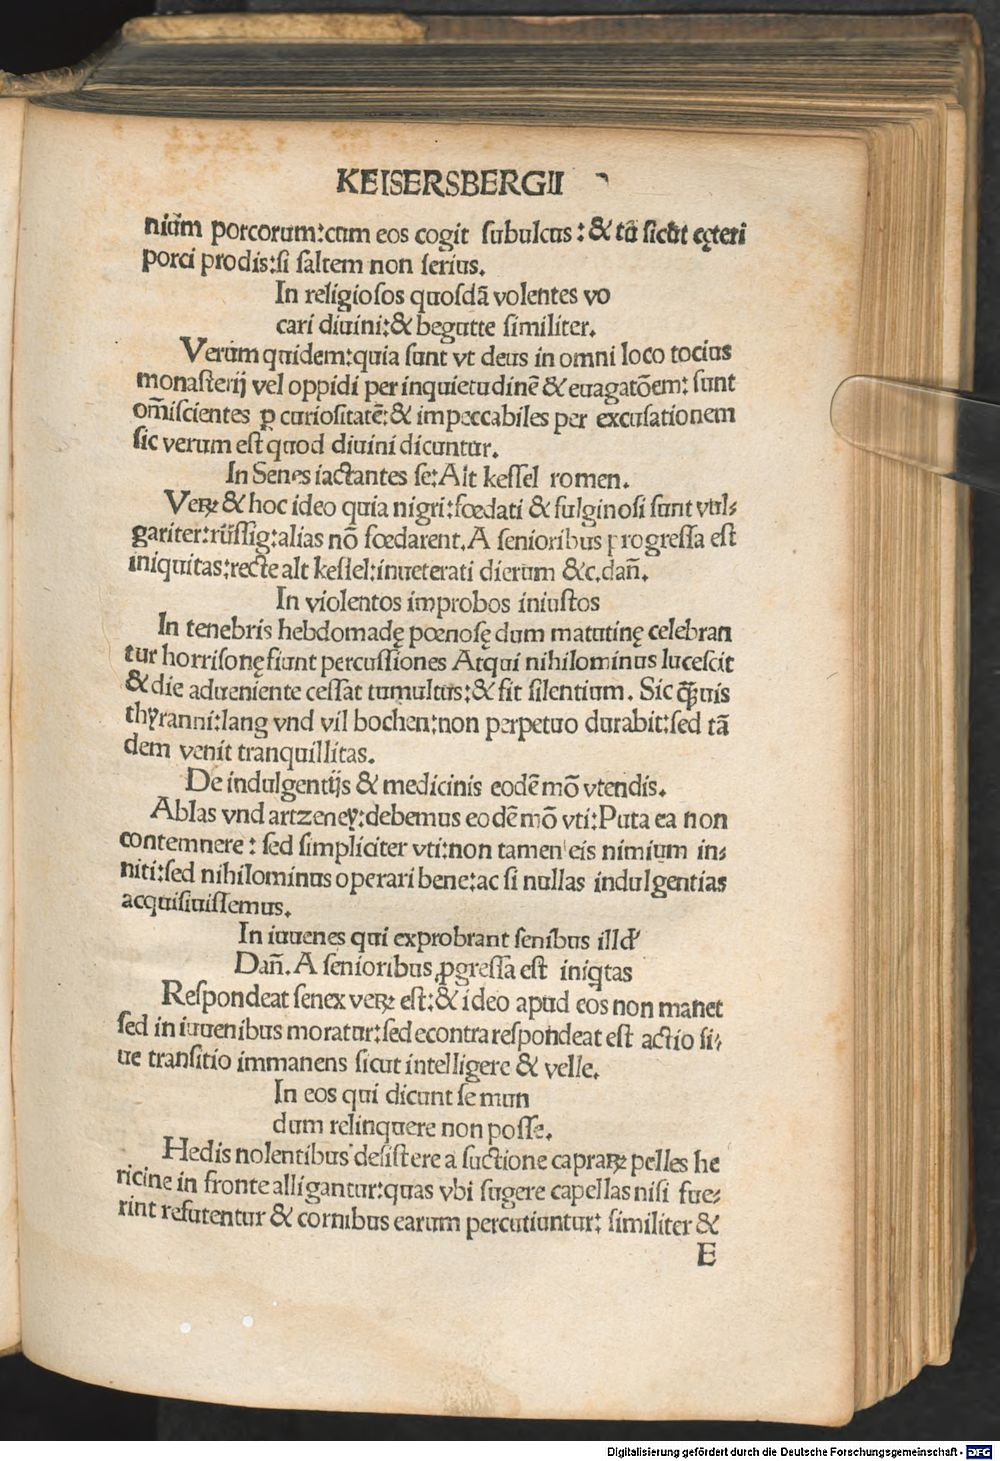 KEISERSBERGII
niũm porcorum:cum eos cogit subulcus:& tũ sicut cęteri
porci prodis:si saltem non serius.
In religiosos quosdã volentes vo
cari diuini:& begutte similiter.
Verum quidem:quia sunt vt deus in omni loco tocius
monasterij vel oppidi per inquietudinẽ & euagatõem: sunt
om̃iscientes ꝑ curiositatẽ:& impeccabiles per excusationem
sic verum est quod diuini dicuntur.
In Senes iactantes se:Alt kessel romen.
Veꝝ & hoc ideo quia nigri:fœdati & fulginosi sunt vul⸗
gariter:rüssig:alias nõ fœdarent. A senioribus progressa est
iniquitas:recte alt kessel:inueterati dierum &c.dañ.
In violentos improbos iniustos
In tenebris hebdomadę pœnosę dum matutinę celebran
tur horrisonę fiunt percussiones Atqui nihilominus lucescit
& die adueniente cessat tumultus:& fit silentium. Sic ꝙ̃uis
thyranni:lang vnd vil bochen:non perpetuo durabit:sed tã
dem venit tranquillitas.
De indulgentijs & medicinis eodẽ mõ vtendis.
Ablas vnd artzeney:debemus eodẽ mõ vti:Puta ea non
contemnere: sed simpliciter vti:non tamen eis nimium in⸗
niti:sed nihilominus operari bene:ac si nullas indulgentias
acquisiuissemus.
In iuuenes qui exprobrant senibus illd'
Dañ. A senioribus ꝓgressa est iniqtas
Respondeat senex veꝝ est:& ideo apud eos non manet
sed in iuuenibus moratur:sed econtra respondeat est actio si⸗
ue transitio immanens sicut intelligere & velle.
In eos qui dicunt se mun
dum relinquere non posse.
Hedis nolentibus desistere a suctione capraꝝ pelles he
ricine in fronte alligantur:quas vbi sugere capellas nisi fue⸗
rint refutentur & cornibus earum percutiuntur: similiter &
E
Digitalisierung gefördert durch die Deutsche Forschungsgemeinschaft - DFG